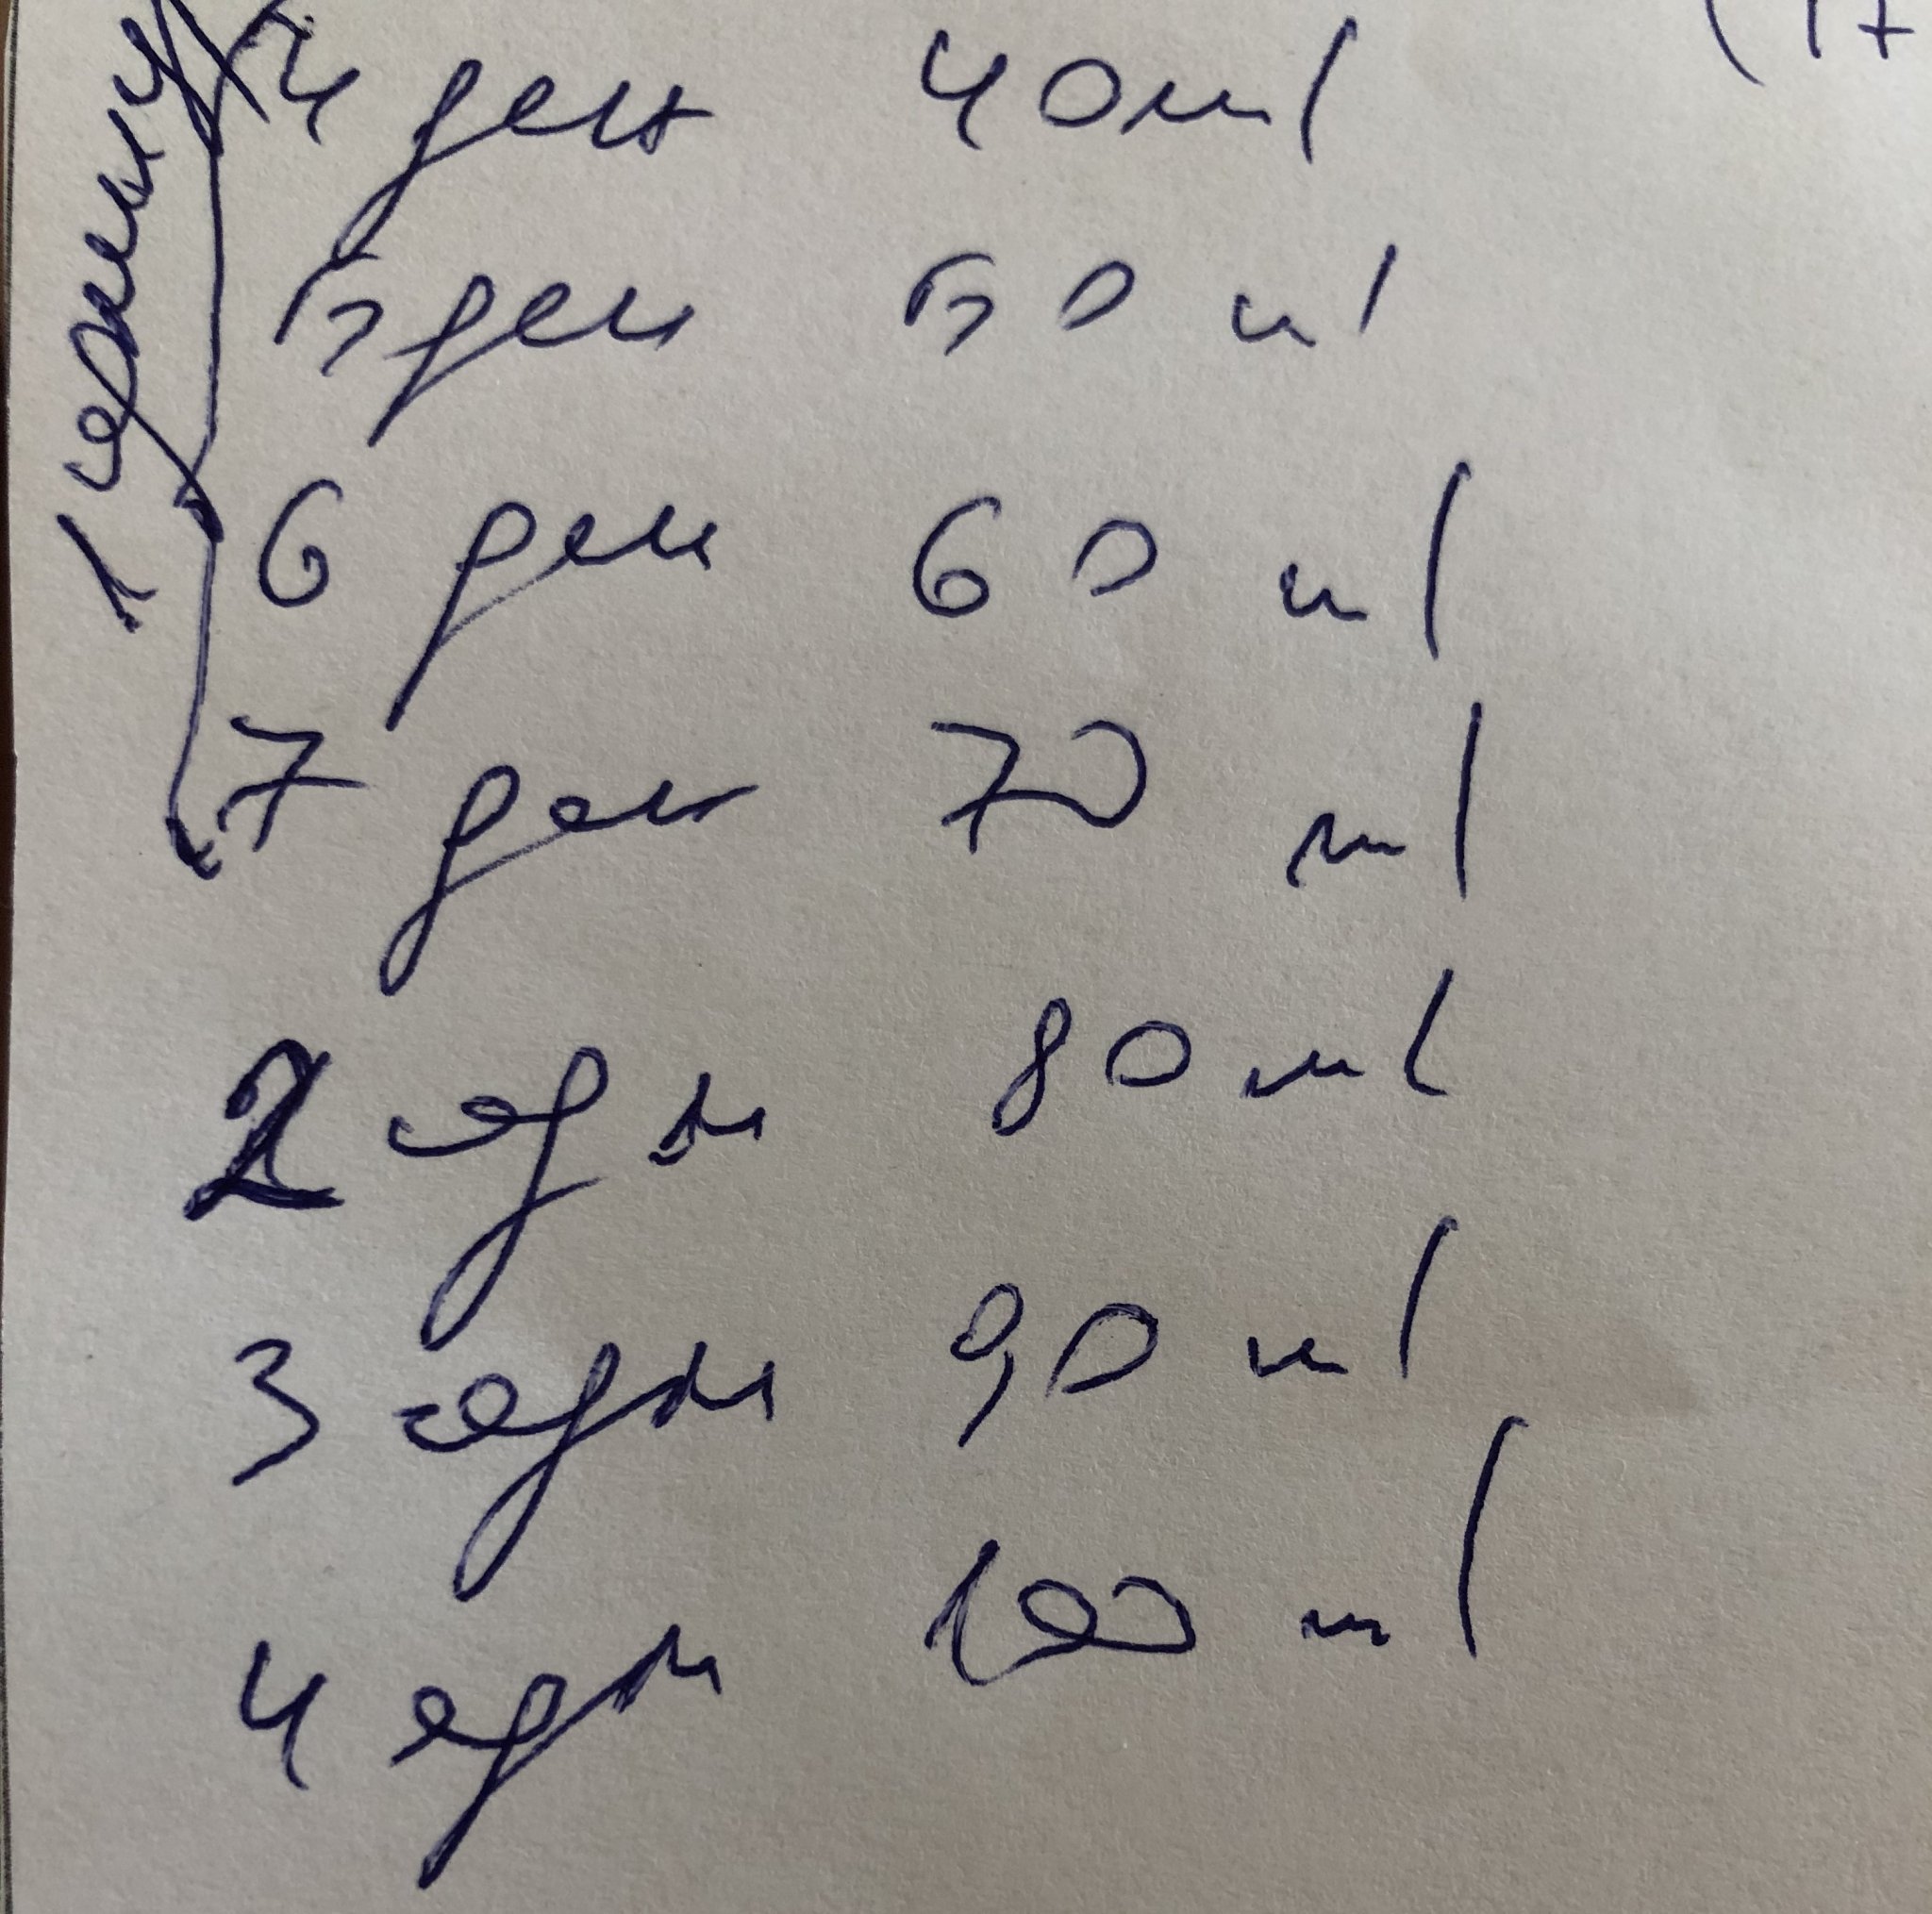 (17
4 ден 40 ml
5 ден 50 ml
6 ден 60 ml
7 ден 70 ml
2 седм 80 ml
3 седм 90 ml
4 седм 100 ml
1 седмицу